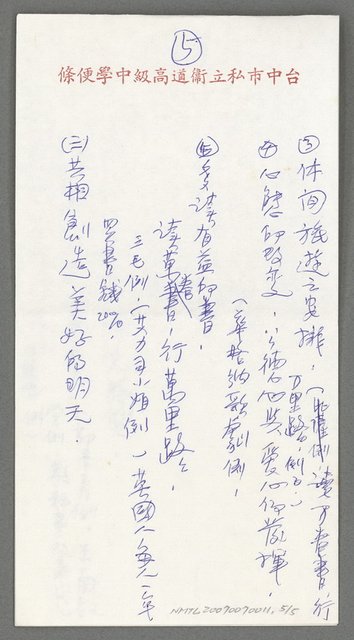 ⑤
台中市私立衞道高級中學便條
③休閒旅遊之安排。(
讀万卷書行
万里路,例6.)
④心態的改变,公德心與愛心的發揮。
(華格納歌劇例。
⑤多讀有益的書。
讀萬卷書,行萬里路。
三毛例,(艾力子小姐例)英國人每人一年
買書錢20%。
(三)共相創造美好的明天
NMTL20090090011, 5/5